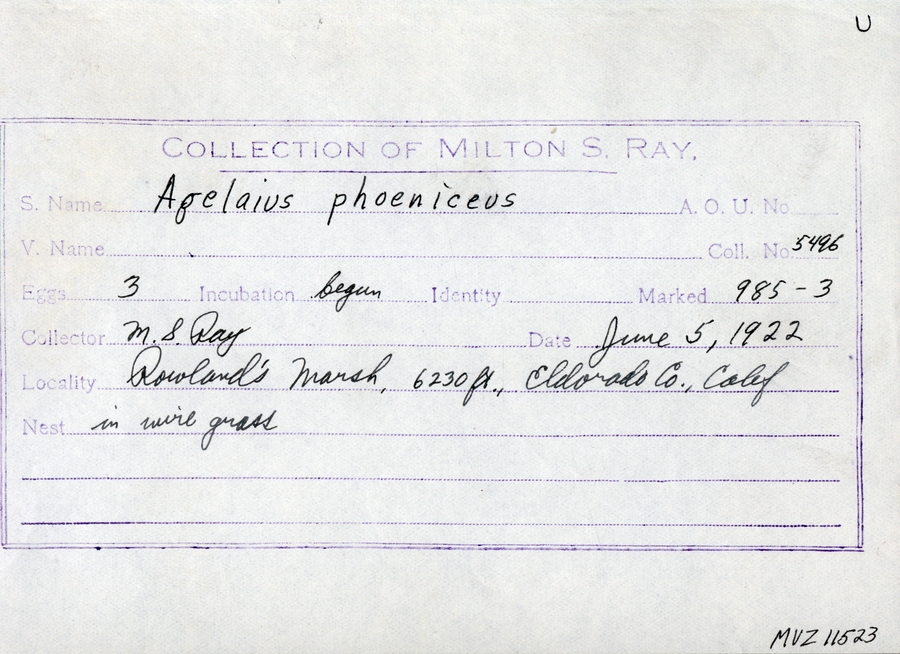 U
COLLECTION OF MILTON S. RAY.
S. Name Agelaius phoeniceus A. O. U. No
V. Name Coll. No 5496
Eggs 3 Incubation begun Identity Marked 985-3
Collector M. S. Ray Date June 5, 1922
Locality Rowland's Marsh, 6230 ft., Eldorado Co., Calif
Nest in wire grass
MVZ 11523